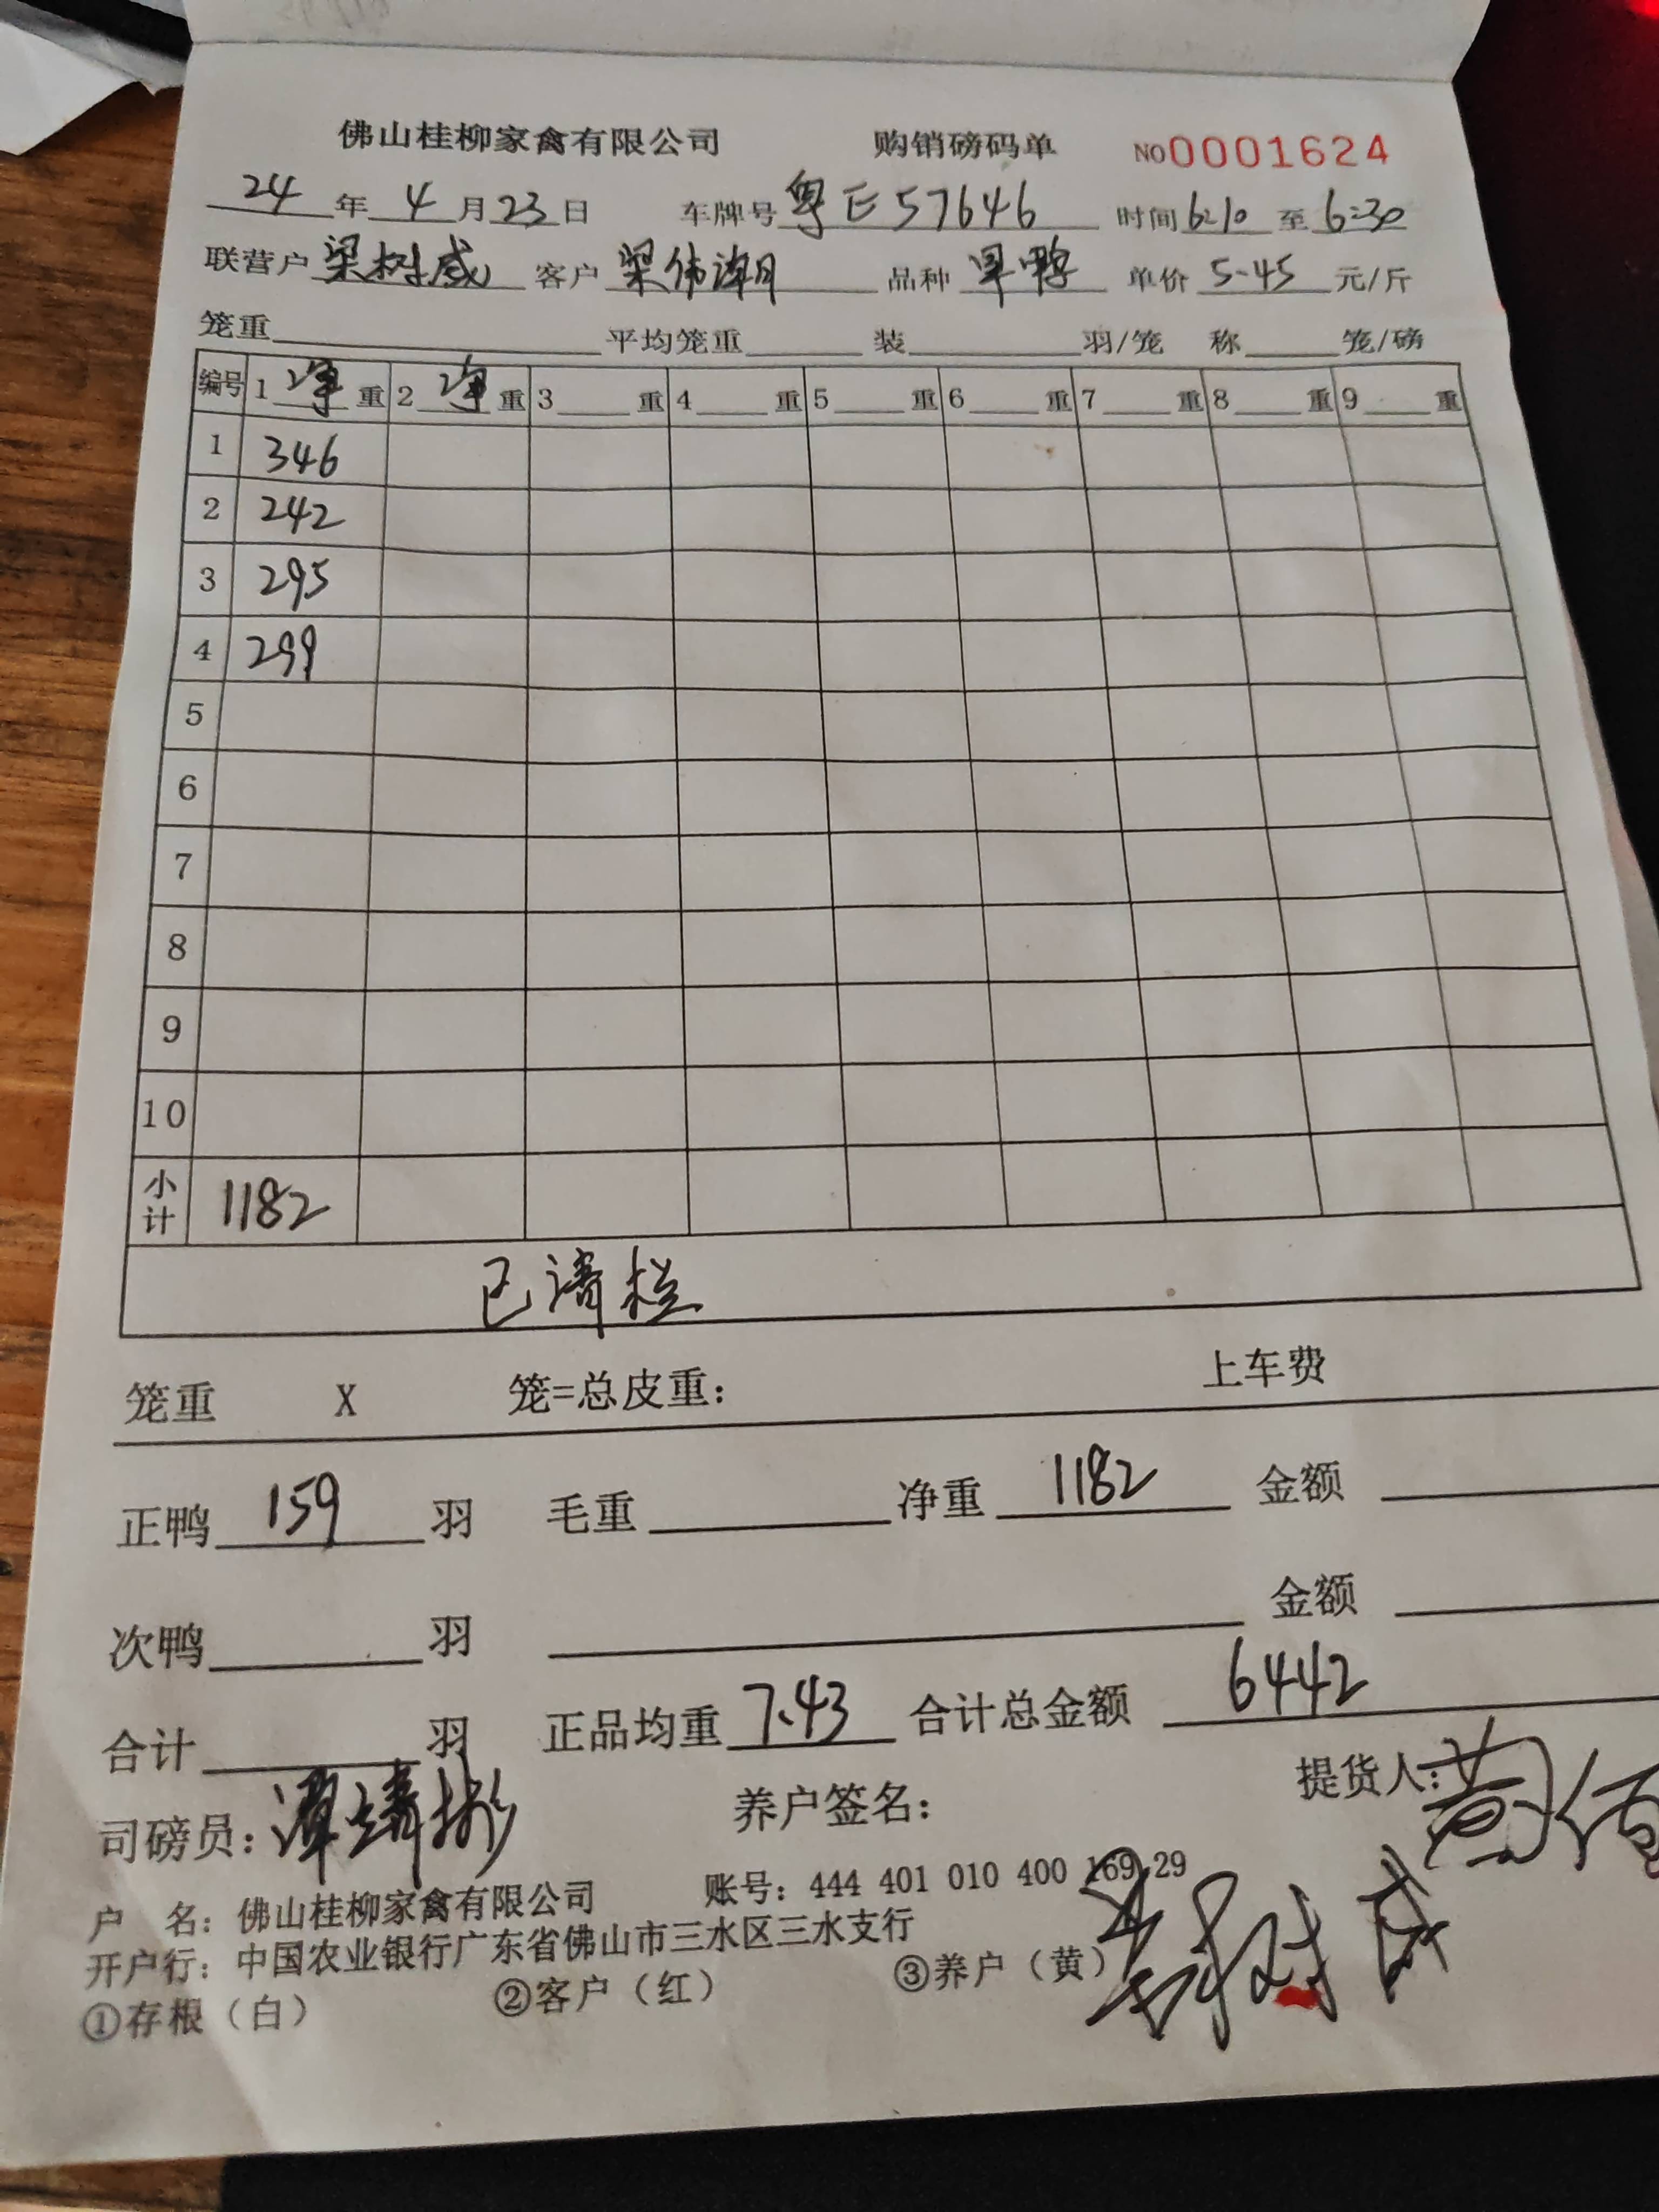 佛山桂柳家禽有限公司 购销磅码单 NO0001624
24年4月23日 车牌号粤E57646 时间6:10至6:30
联营户梁树威 客户梁伟潮 品种旱鸭 单价5.45元/斤
笼重 平均笼重 装 羽/笼 称 笼/磅
编号 1净重 2净重 3重 4重 5重 6重 7重 8重 9重
1 346
2 242
3 295
4 299
5
6
7
8
9
10
小计 1182
已清栏
笼重 X 笼=总皮重: 上车费
正鸭159羽 毛重 净重1182 金额
次鸭 羽 金额
合计 羽 正品均重7.43 合计总金额6442
司磅员: 养户签名: 提货人:
户 名: 佛山桂柳家禽有限公司 账号: 444 401 010 400 169 29
开户行: 中国农业银行广东省佛山市三水区三水支行
①存根(白) ②客户(红) ③养户(黄)